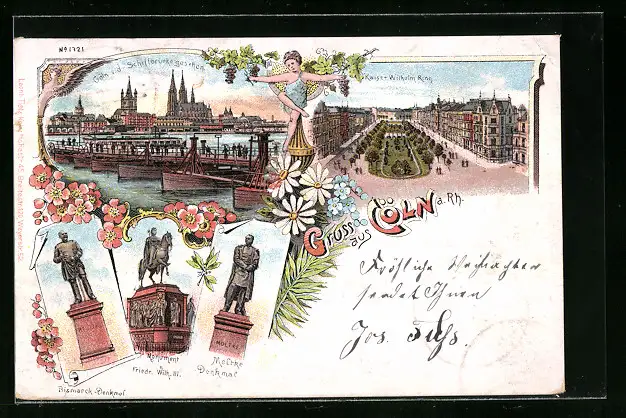 No 1721
Cöln v.d. Schiffbrücke gesehen
Kaiser Wilhelm Ring
Gruss
aus
CÖLN a. Rh.
Fröhliche Weihnachten
sendet Ihnen
Jos.
MOLTKE
Monument
Friedr. Wilh. III.
Moltke
Denkmal
Bismarck-Denkmal